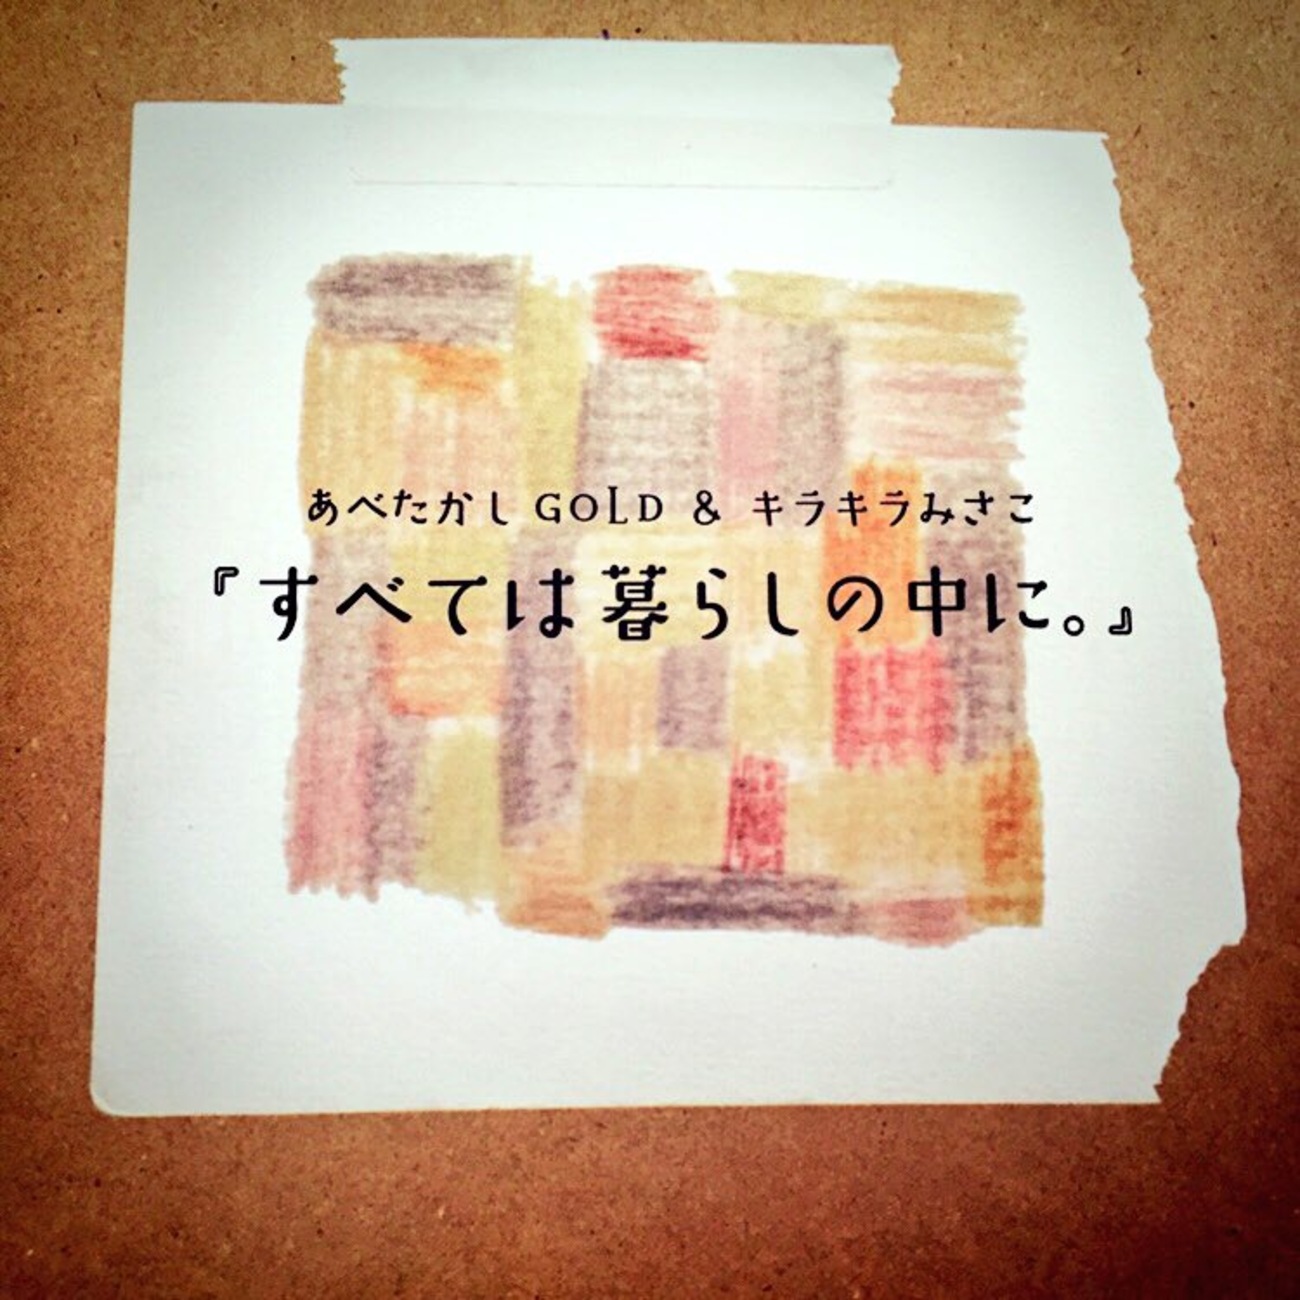 あべたかし GOLD & キラキラみさこ
『すべては暮らしの中に。』